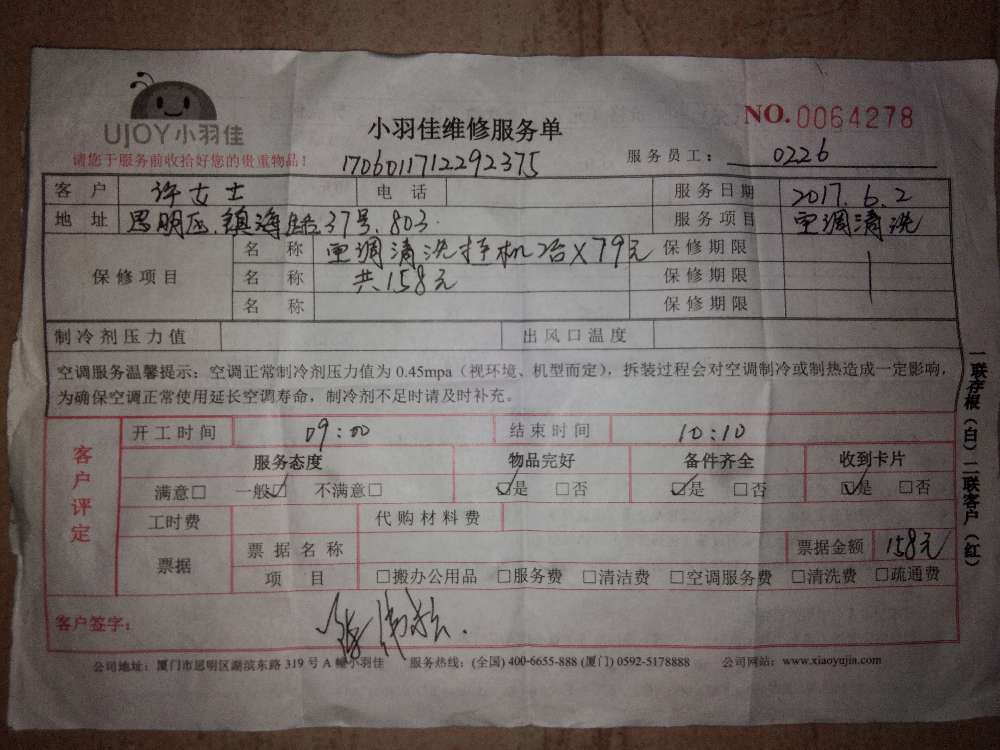 UJOY小羽佳
小羽佳维修服务单
NO.0064278
请您于服务前收拾好您的贵重物品！
1706011712292375
服务员工： 0226
客户 许女士 电话 服务日期 2017.6.2
地址 思明区镇海路37号.803. 服务项目 空调清洗
保修项目
名称 空调清洗挂机2台X79元 保修期限
名称 共158元 保修期限
名称 保修期限
制冷剂压力值 出风口温度
空调服务温馨提示：空调正常制冷剂压力值为 0.45mpa（视环境、机型而定），拆装过程会对空调制冷或制热造成一定影响，
为确保空调正常使用延长空调寿命，制冷剂不足时请及时补充。
客户评定
开工时间 09:00 结束时间 10:10
服务态度 物品完好 备件齐全 收到卡片
满意□ 一般☑ 不满意□ ☑是 □否 ☑是 □否 ☑是 □否
工时费 代购材料费
票据
票据名称 票据金额 158元
项目 □搬办公用品 □服务费 □清洁费 □空调服务费 □清洗费 □疏通费
客户签字：
公司地址：厦门市思明区湖滨东路 319 号 A 幢小羽佳 服务热线：(全国) 400-6655-888 (厦门) 0592-5178888 公司网站：www.xiaoyujia.com
一联存根（白）二联客户（红）